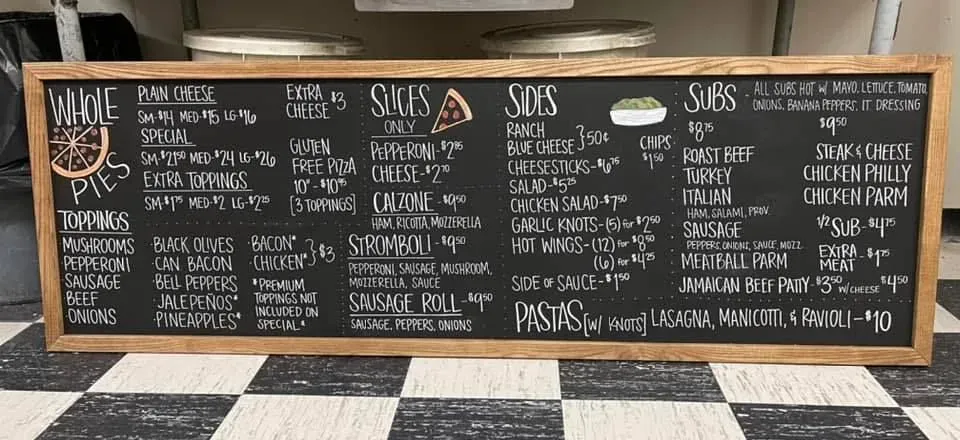 WHOLE
PIES
PLAIN CHEESE
SM-$14 MED-$15 LG-$16
SPECIAL
SM-$21⁵⁰ MED-$24 LG-$26
EXTRA TOPPINGS
SM-$1⁷⁵ MED-$2 LG-$2²⁵
EXTRA
CHEESE $3
GLUTEN
FREE PIZZA
10"-$10⁹⁵
[3 TOPPINGS]
TOPPINGS
MUSHROOMS
PEPPERONI
SAUSAGE
BEEF
ONIONS
BLACK OLIVES
CAN BACON
BELL PEPPERS
JALEPEÑOS*
PINEAPPLES*
BACON*
CHICKEN* } $3
*PREMIUM
TOPPINGS NOT
INCLUDED ON
SPECIAL*
SLICES
ONLY
PEPPERONI-$2⁸⁵
CHEESE-$2⁷⁰
CALZONE-$9⁵⁰
HAM, RICOTTA, MOZZERELLA
STROMBOLI-$9⁵⁰
PEPPERONI, SAUSAGE, MUSHROOM,
MOZZERELLA, SAUCE
SAUSAGE ROLL-$9⁵⁰
SAUSAGE, PEPPERS, ONIONS
SIDES
RANCH
BLUE CHEESE } 50¢
CHEESESTICKS-$6⁷⁵
SALAD-$5²⁵
CHICKEN SALAD-$7⁵⁰
GARLIC KNOTS-(5) for $2⁵⁰
HOT WINGS-(12) for $8⁵⁰
(6) for $4²⁵
SIDE OF SAUCE-$1⁵⁰
CHIPS
$1⁵⁰
SUBS
ALL SUBS HOT W/ MAYO, LETTUCE, TOMATO,
ONIONS, BANANA PEPPERS, IT DRESSING
$8⁷⁵
ROAST BEEF
TURKEY
ITALIAN
HAM, SALAMI, PROV.
SAUSAGE
PEPPERS, ONIONS, SAUCE, MOZZ.
MEATBALL PARM
$9⁵⁰
STEAK & CHEESE
CHICKEN PHILLY
CHICKEN PARM
½ SUB-$4⁷⁵
EXTRA
MEAT -$1⁷⁵
JAMAICAN BEEF PATTY-$3⁵⁰ W/CHEESE $4⁵⁰
PASTAS [W/ KNOTS] LASAGNA, MANICOTTI, & RAVIOLI-$10